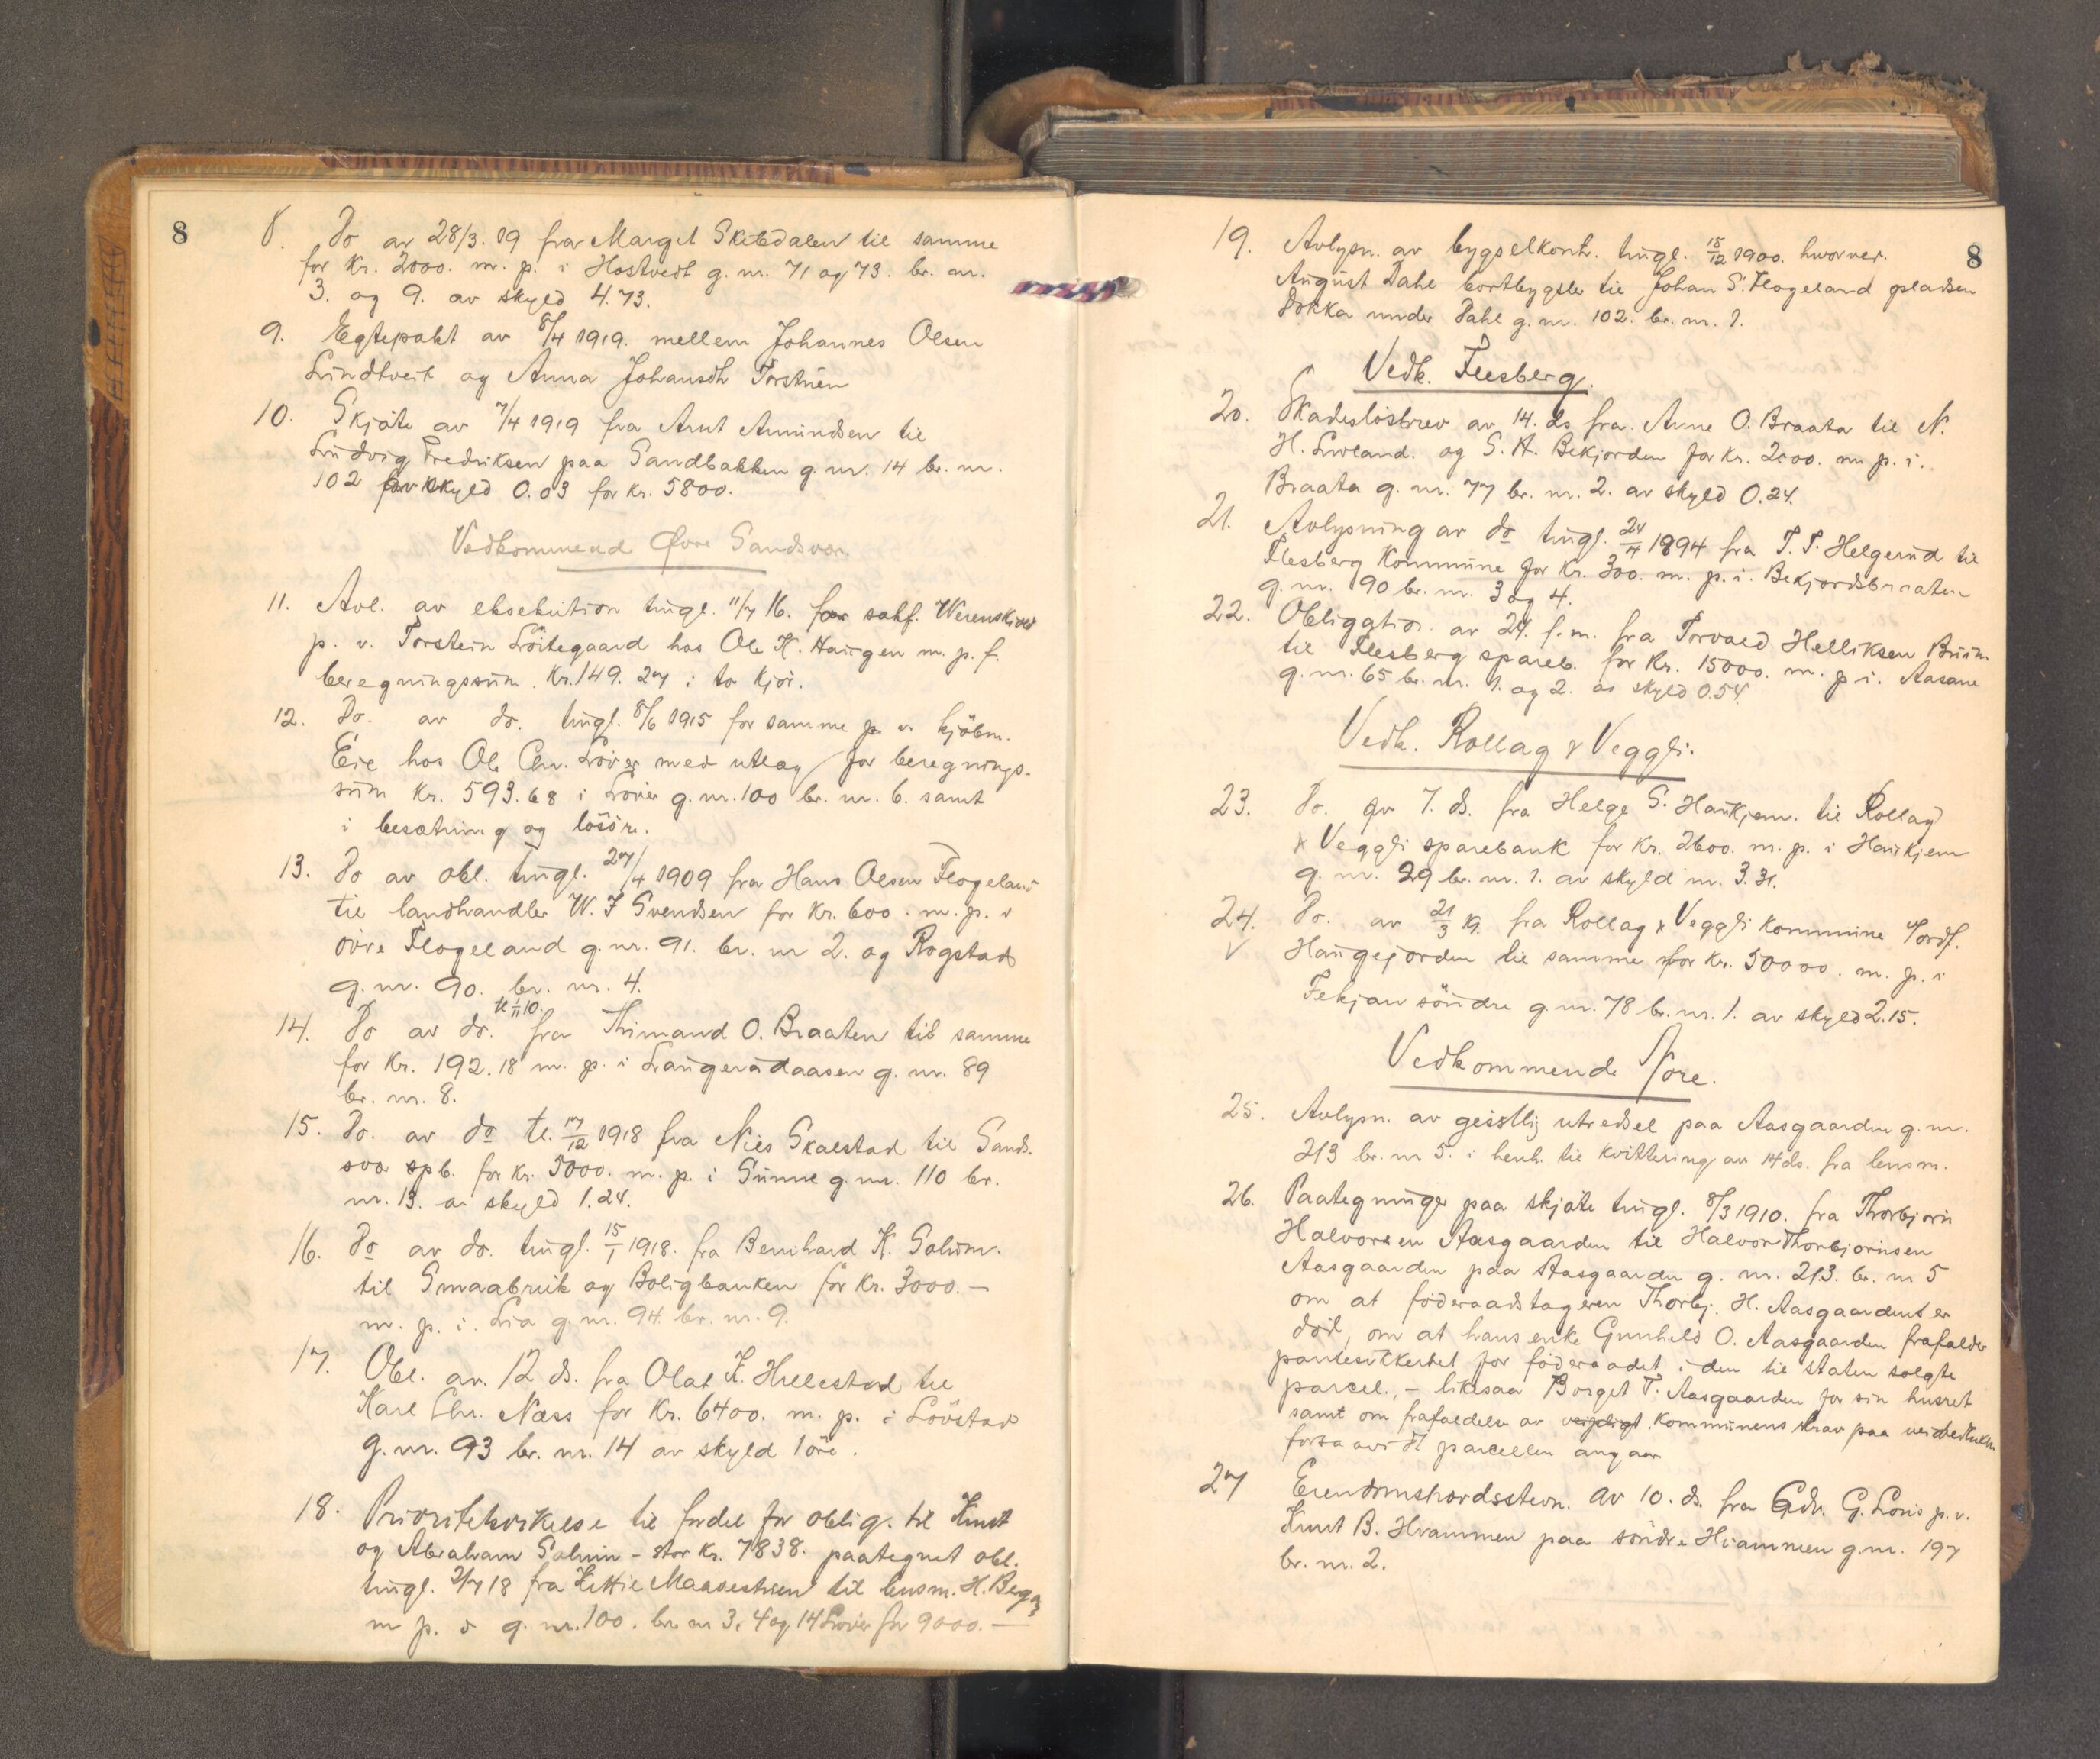 8
8. Do av 28/3. 19 fra Margit Skitedalen til samme
for kr. 2000. m. p. i Hostvedt g. nr. 71 og 73. br. nr.
3. og 9. av skyld 4.73.
9. Egtepakt av 8/4 1919. mellem Johannes Olsen
Lindtveit og Anna Johansdh
10. Skjøte av 7/4 1919 fra Arnt Amundsen til
Ludvig Fredriksen paa Sandbakken g. nr. 14 br. nr.
102 av skyld 0.03 for kr. 5800.
Vedkommend Øvre Sandsvær.
11. Avl. av eksekution tingl. 11/7 16. for sakf. Werenskiold
p. v. Torstein Löitegaard hos Ole K. Haugen m. p. f.
beregningssum. Kr. 149. 27 i to kjör.
12. Do. av do. tingl. 8/6 1915 for samme p. v. kjöbm.
Eie hos Ole Chr. Löver med utlæg for beregnings-
sum kr. 593.68 i Löver g. nr. 100 br. nr. 6. samt
i besætning og lösöre.
13. Do av obl. tingl. 27/4 1909 fra Hans Olsen Flogeland
til landhandler W. F Svendsen for kr. 600. m. p. i
övre Flogeland g. nr. 91. br. nr 2. og Rogstad
g. nr. 90. br. nr. 4.
14. Do av do. tl 1/11 10. fra Thimand O. Braaten til samme
for kr. 192.18 m. p. i Laugerudaasen g. nr. 89
br. nr. 8.
15. Do. av do tl. 17/12 1918 fra Nils Skalstad til Sands-
svær spb. for kr. 5000. m. p. i Sunne g. nr. 110 br.
nr. 13. av skyld 1.24.
16. Do av do. tingl. 15/1 1918. fra Bernhard K. Solum.
til Smaabruk og Boligbanken for kr. 3000.—
m. p. i. Lia g. nr. 94. br. nr. 9.
17. Obl. av. 12 ds. fra Olaf K. Hellestad til
Karl Chr. Næss for kr. 6400. m. p. i Lövstad
g. nr. 93 br. nr. 14 av skyld 1 öre.
18. Prioritetsvikelse til fordel for oblig. til Knut
og Abraham Solum - stor kr. 7838. paategnet obl.
tingl. 2/7 18 fra Kittil til lensm. H. Bega
m p. i g. nr. 100. br. nr 3, 4 og 14 Löver for 9000.—
8
19. Avlysn. av bygselkontr. tingl. 15/12 1900. hvorved.
August Dahl bortbygsler til Johan S. Flogeland pladsen
Dokka under Dahl g. nr. 102. br. nr. 1.
Vedk. Flesberg.
20. Skadeslösbrev av 14. ds fra. Anne O. Braata til N.
H. Lurland. og S. A. Bekjorden for kr. 2000. m. p. i.
Braata g. nr. 77 br. nr. 2. av skyld 0.24.
21. Avlysning av do tingl. 24/4 1894 fra T. T. Helgerud til
Flesberg Kommune for kr. 300. m. p. i. Bekjordsbraaten
g. nr. 90 br. nr. 3 og 4.
22. Obligation av 24. f. m. fra Torvald Helliksen Bruin
til Flesberg spareb. for kr. 15000. m. p i. Aasane
g. nr. 65 br. nr. 1. og 2. av skyld 0.54.
Vedk. Rollag & Veggli.
23. Do. av 7. ds. fra Helge S. Haukjem. til Rollag
& Veggli sparebank for kr. 2600. m. p. i Haukjem
g. nr. 29 br. nr. 1. av skyld m. 3.31.
24. Do. av 21/3 19. fra Rollag & Veggli kommune v/ordf.
Haugejorden til samme for kr. 50000. m. p. i
Fekjan söndre g. nr. 78 br. nr. 1. av skyld 2.15.
Vedkommende Nore.
25. Avlysn. av geistlig utredsel paa Aasgaarden g. nr.
213 br. nr 5. i henh. til kvittering av 14 ds. fra lensm.
26. Paategninger paa skjöte tingl. 8/3 1910. fra Thorbjörn
Halvorsen Aasgaarden til Halvor Thorbjörnsen
Aasgaarden paa Aasgaarden g. nr. 213. br. nr 5
om at föderaadstageren Thorbj. H. Aasgaarden er
död, om at hans enke Gunhild O. Aasgaarden frafalder
pantesikkerhet for föderaadet i den til staten solgte
parcel, - likesaa Borget T. Aasgaarden for sin husret
samt om frafaldelse av kommunens krav paa
forsaavidt parcellen angaar
27 Eiendomshordsstevn. av 10. ds. fra Gdr. G. Loris p. v.
Knut B. Hvammen paa söndre Hvammen g nr. 197
br. nr. 2.